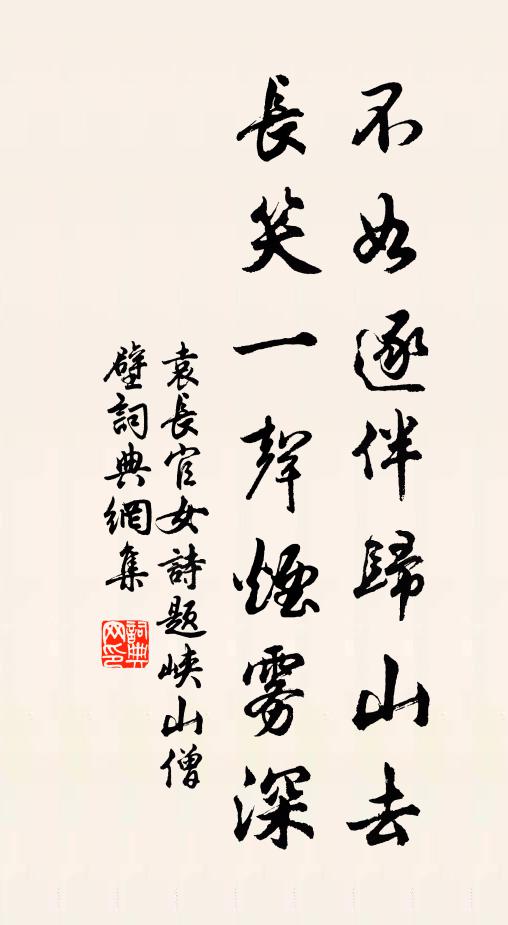 不如逐伴歸山去
長笑一聲煙雾深
袁長官女詩題峽山僧
壁詞典網集
詞典
网印